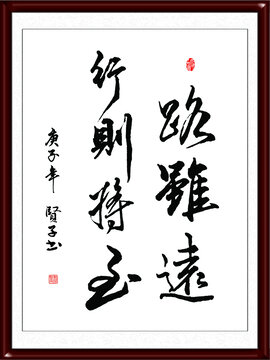 路雖遠
行則將至
庚子年 賢子书